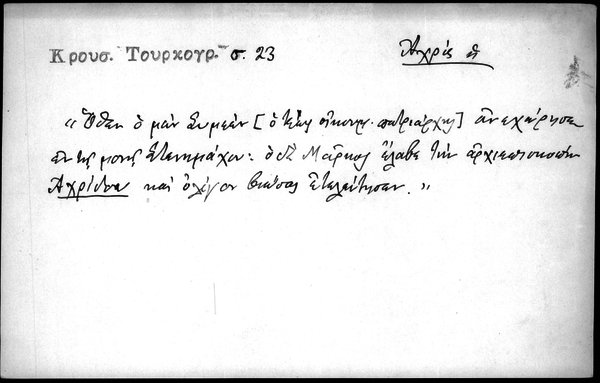 Κρουσ. Τουρκογρ. σ. 23
Ἀχρὶς
«Ὅθεν ὁ μὲν Συμεὼν [ὁ οἰκουμ. πατριάρχης] ἀνεχώρησε
ἐν τῇ μονῇ Στενημάχου· ὁ δὲ Μᾶρκος ἔλαβε τὴν ἀρχιεπισκοπὴν
Ἀχρίδος καὶ ὀλίγον βιώσας ἐτελεύτησεν.»